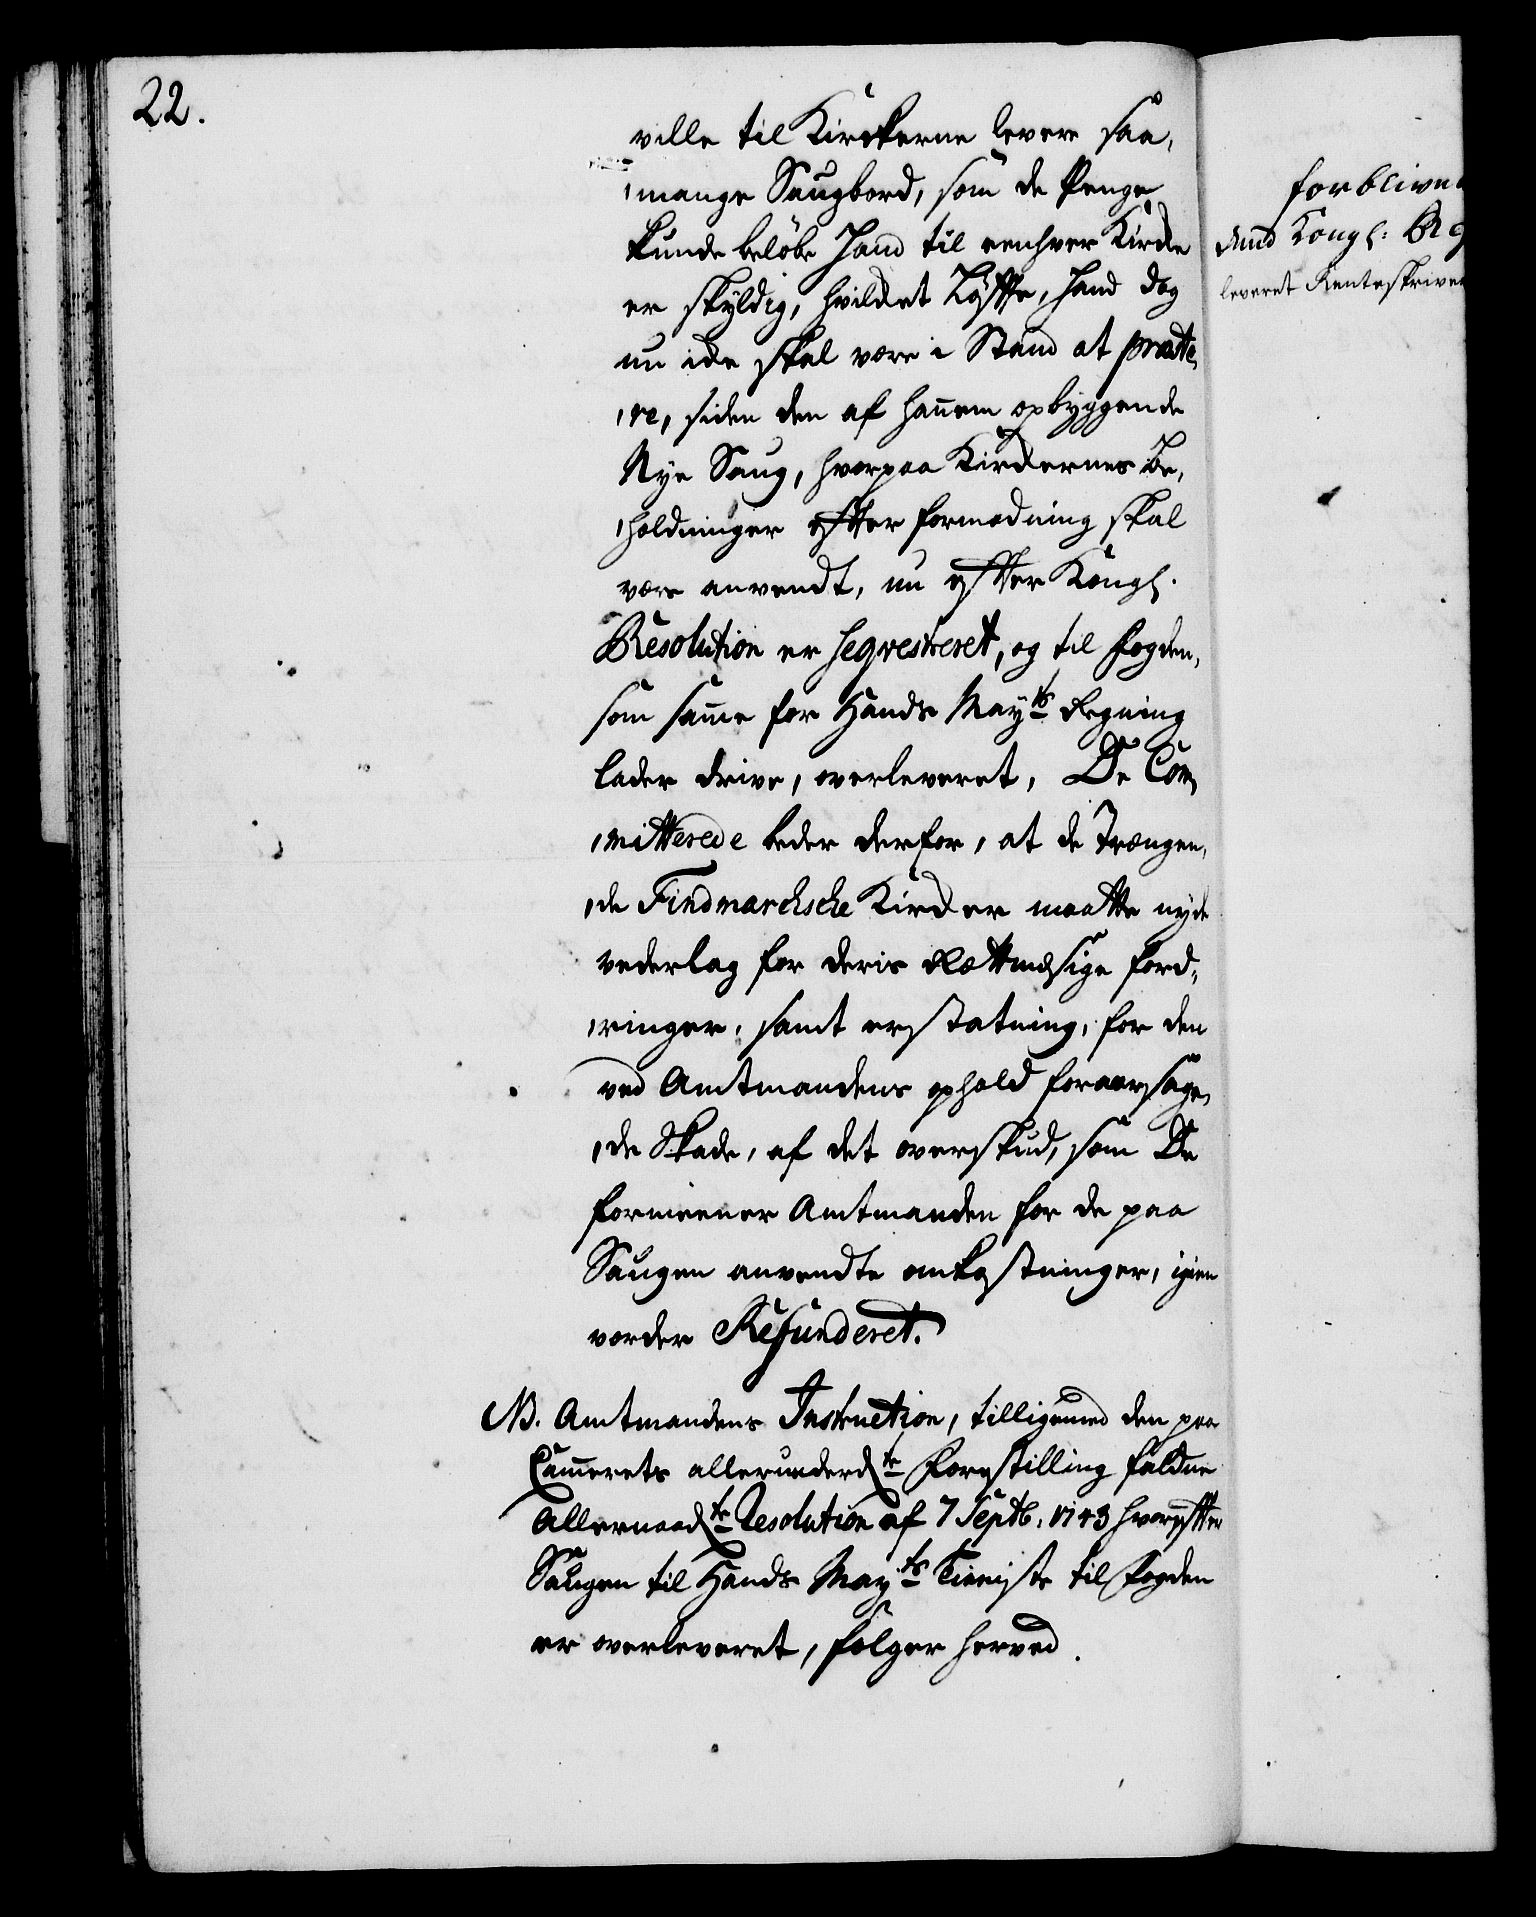 22.
ville til Kirckerne levere saa,
,mange Saugbord, som de Penge
kunde beløbe Hand til eenhver Kirke
er skyldig, hvilcket Løffte, hand dog
nu icke skal være i Stand at præste,
,re, siden den af hannem opbyggende
Nye Saug, hvorpaa Kirckernes Be,
,holdninger effter formodning skal
være anvendt, nu effter Kongl.
Resolution er seqvestreret, og til Fogden,
som samme for Hands Mayts Regning
lader drive, overleveret, De Com,
,mitterede beder derfor, at de Trængen,
,de Findmarchsche Kircker maatte nyde
vederlag for deris Rettmæsige ford,
,ringer, samt erstatning, for den
ved Amtmandens ophold foraarsage,
,de Skade, af det overskud, som De
formeener Amtmanden for de paa
Saugen anvendte omkostninger, igien
vorder Refunderet.
NB. Amtmandens Instruction, tilligemed den paa
Cammerets allerunderdte Forestilling faldne
Allernaadte Resolution af 7 Septb. 1743 hvoreffter
Saugen til Hands Mayts Tieniste til Fogden
er overleveret, følger herved.
forblive
Kongl:
leveret Renteskriver